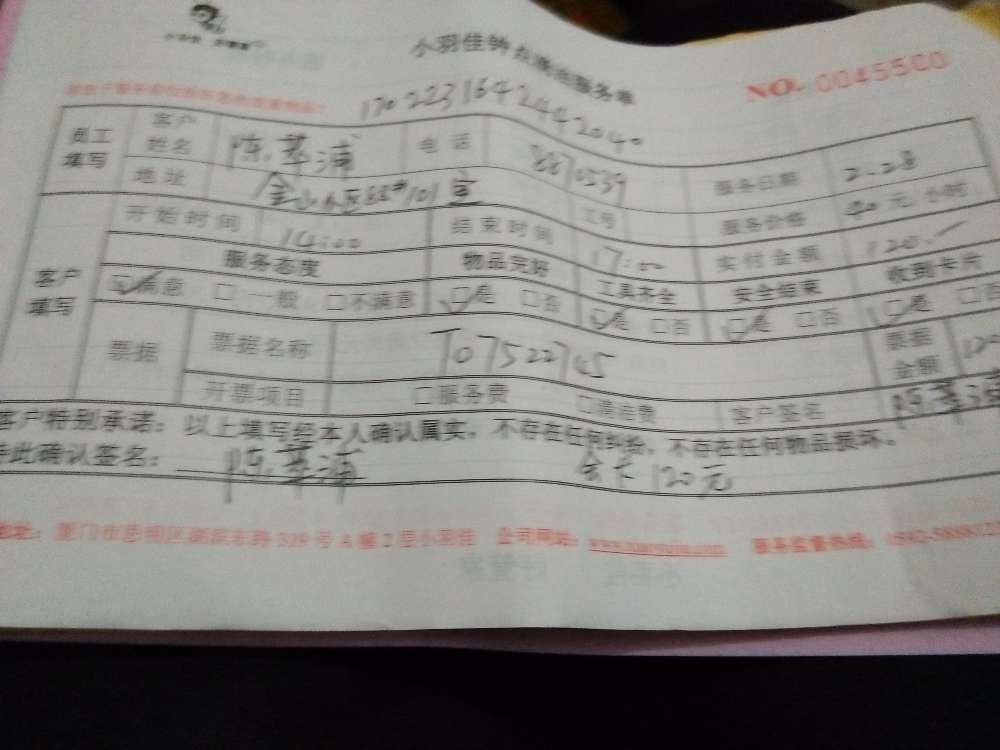 小羽佳钟点清洁服务单
NO. 0045500
170223164244 2040
员工填写 客户姓名 陈 电话 8870539 服务日期 2.28
地址 金山小区 101室 工号 服务价格 40元/小时
客户填写 开始时间 14:00 结束时间 17:00 实付金额 120.
服务态度 物品完好 工具齐全 安全结束 收到卡片
☑满意 □一般 □不满意 ☑是 □否 ☑是 □否 ☑是 □否 ☑是 □否
票据 票据名称 T07522745 票据金额 120
开票项目 □服务费 □清洁费 客户签名 陈
客户特别承诺：以上填写经本人确认属实，不存在任何纠纷，不存在任何物品损坏。
此确认签名： 陈 120元
地址：厦门市思明区湖滨东路319号A幢2层小羽佳 公司网站： 服务监督热线：